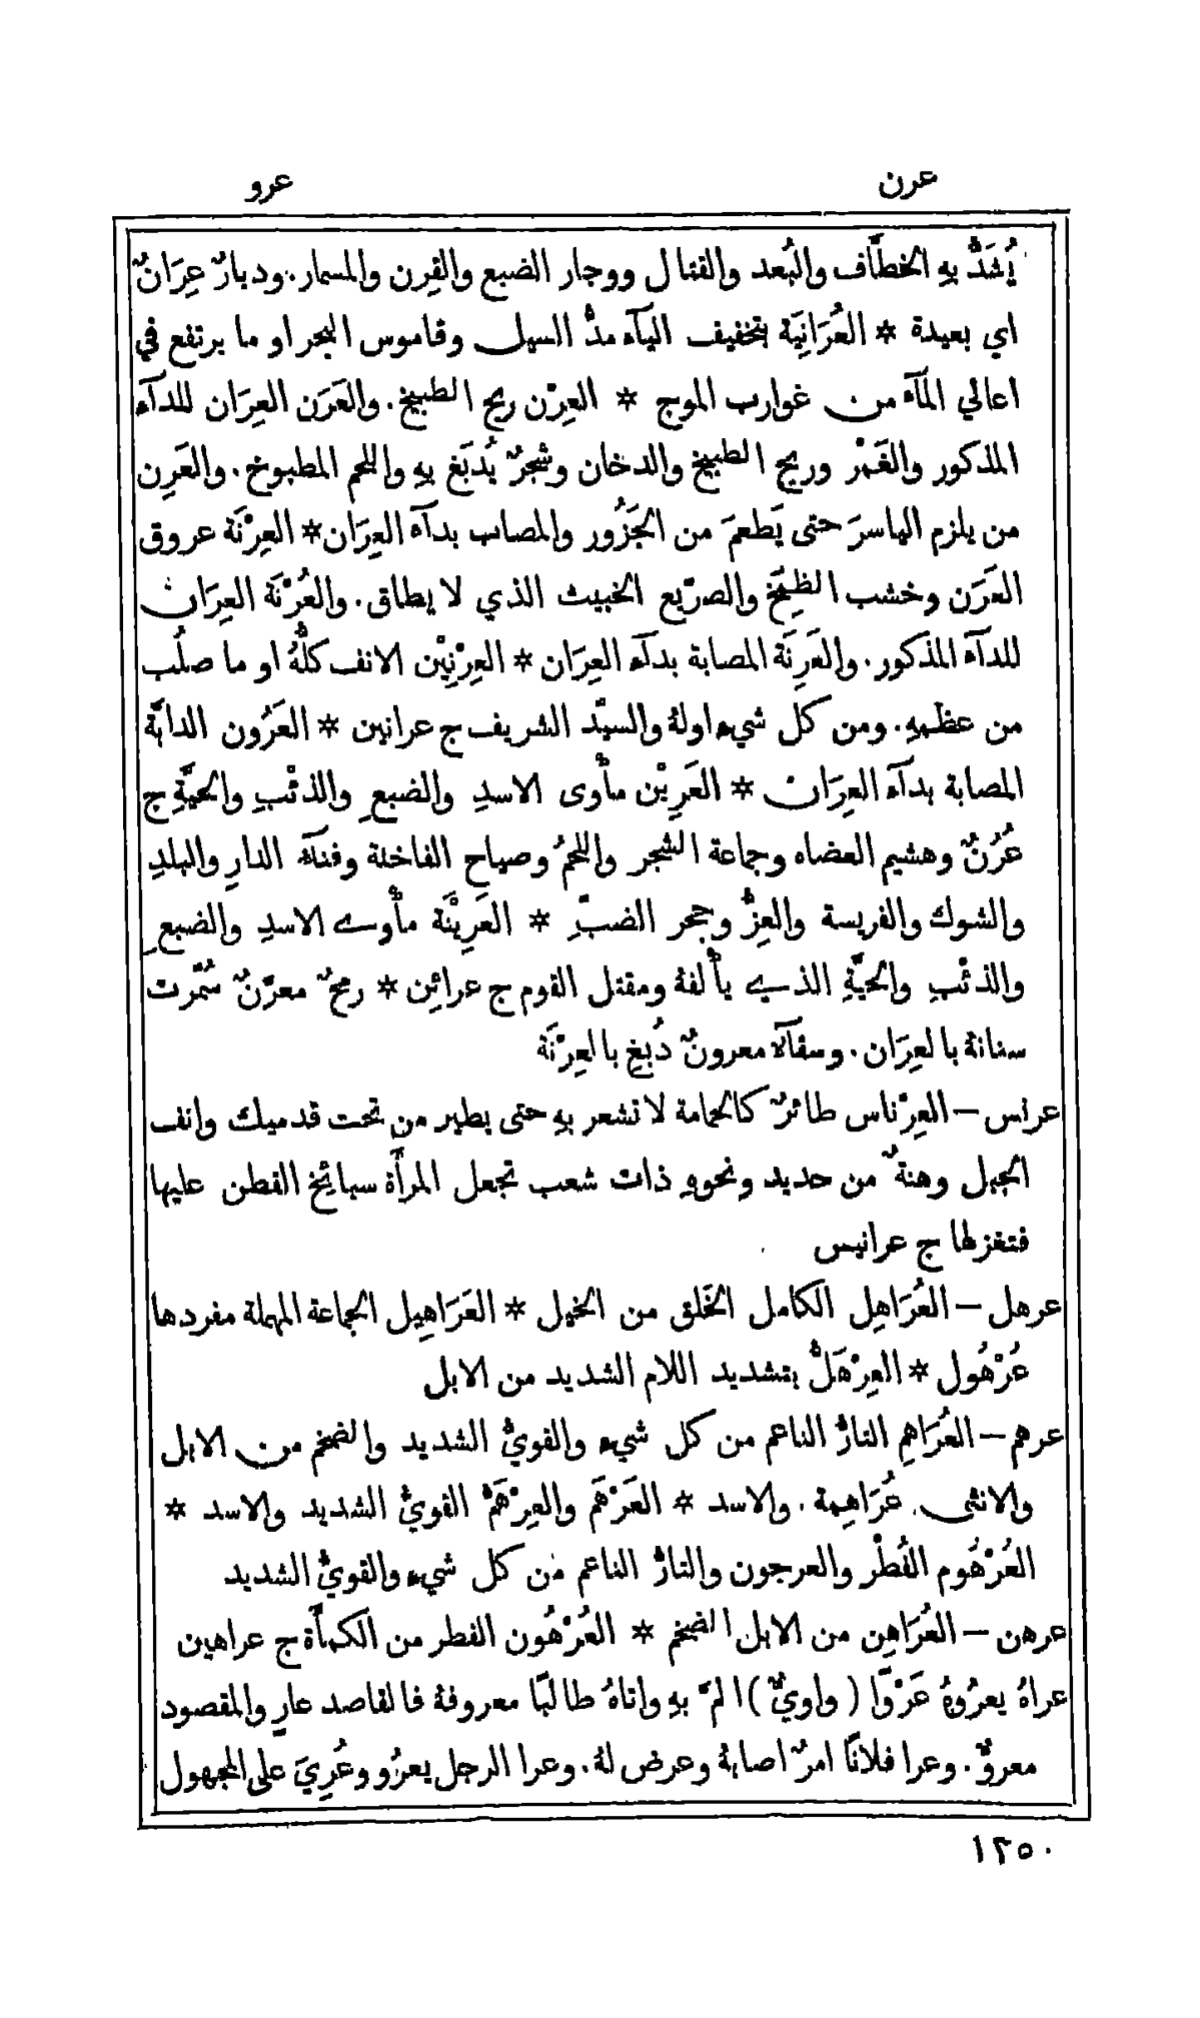 عرن عرو
يُشَدُّ بهِ الخطَّاف والبُعد والقتال ووجار الضبع والقِرن والمسمار. وديارٌ عِرَانٌ
اي بعيدة * العُرَانِيَة بتخفيف اليآء مدُّ السيل وقاموس البحر او ما يرتفع في
اعالي المآء من غوارب الموج * العِرْن ريح الطبيخ. والعَرَن العِرَان للدآء
المذكور والغَمْر وريح الطبيخ والدخان وشجرٌ يُدبَغ بهِ واللحم المطبوخ. والعَرِن
من يلزم الياسرَ حتى يَطعمَ من الجَزُور والمصاب بدآء العِرَان * العِرْنَة عروق
العَرَن وخشب الظِمْخ والصرّيع الخبيث الذي لا يطاق. والعُرْنَة العِرَان
للدآء المذكور. والعَرِنَة المصابة بدآء العِرَان * العِرْنِيْن الانف كلُّهُ او ما صلُب
من عظمهِ. ومن كل شيء اولهُ والسيّد الشريف ج عرانين * العَرُون الدابَّة
المصابة بدآء العِرَان * العَرِيْن مأْوى الاسدِ والضبعِ والذئبِ والحيَّةِ ج
عُرُنٌ وهشيم العضاه وجماعة الشجر واللحمُ وصياح الفاختة وفنآء الدارِ والبلدِ
والشوك والفريسة والعِزُّ وجحر الضبّ * العَرِيْنَة مأْوى الاسدِ والضبعِ
والذئبِ والحيَّةِ الذي يأْلفهُ ومقتل القوم ج عرائِن * رمحٌ معرَّنٌ سُمّرت
سنانهُ بالعِرَان. وسقآلا معرونٌ دُبِغ بالعِرْنَة
عرنس – العِرْناس طائرٌ كالحمامة لا تشعر بهِ حتى يطير من تحت قدميك وانف
الجبل وهنةٌ من حديد ونحوهِ ذات شعب تجعل المرأَة سبائِخ القطن عليها
فتغزلها ج عرانيس
عرهل – العُرَاهِل الكامل الخَلق من الخيل * العَرَاهِيل الجماعة المهملة مفردها
عُرْهُول * العِرْهَلُّ بتشديد اللام الشديد من الابل
عرهم – العُرَاهِم التارُّ الناعم من كل شيء والقويُّ الشديد والضخم من الابل
والانثى عُرَاهِمة. والاسد * العَرْهَم والعِرْهَمُّ القويُّ الشديد والاسد *
العُرْهُوم الفُطْر والعرجون والتارُّ الناعم من كل شيء والقويُّ الشديد
عرهن – العُرَاهِن من الابل الضخم * العُرْهُون الفطر من الكمأَة ج عراهين
عراهُ يعرُوهُ عَرْوًا (واويٌّ) المَّ بهِ واتاهُ طالبًا معروفهُ فالقاصد عارٍ والمقصود
معروٌّ. وعرا فلانًا امرٌ اصابهُ وعرض لهُ. وعرا الرجل يعرُو وعُرِيَ على المجهول
١٢٥٠